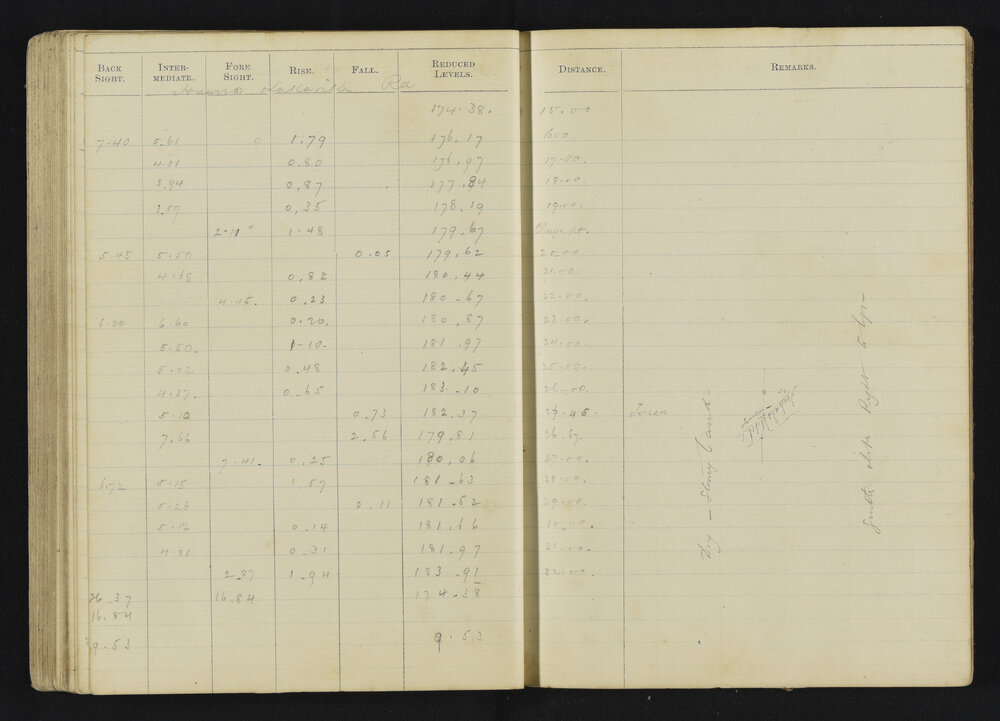 BACK SIGHT. INTER-MEDIATE. FORE SIGHT. RISE. FALL. REDUCED LEVELS. DISTANCE. REMARKS.
Rd
174.38. 15.00
7.40 5.61 0 1.79 176.17 1600.
4.81 0.80 176.97 17.00.
3.94 0.87 177.84 18.00.
3.59 0.35 178.19 19.00.
2.11" 1.48 179.67
5.45 5.50 0.05 179.62 20.00
4.68 0.82 180.44 21.00.
4.45. 0.23 180.67 22.00.
6.80 6.60 0.20. 180.87 23.00.
5.50. 1.10. 181.97 24.00.
5.02 0.48 182.45 25.00.
4.37. 0.65 183.10 26.00
5.10 0.73 182.37 26.45.
7.66 2.56 179.81 26.67.
7.41. 0.25 180.06 27.00.
6.72 5.15 1.57 181.63 28.00.
5.26 0.11 181.52 29.00.
5.12 0.14 181.66 30.00.
4.81 0.31 181.97 31.00.
2.87 1.94 183.91 32.00.
26.37 16.84 174.38
16.84
9.53 9.53
Dry - Stony land -
South side Right to